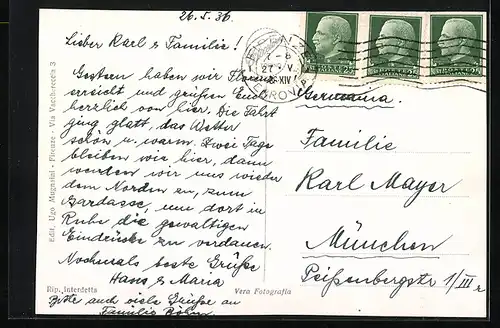 26.5.36.
Lieber Karl & Familie!
Gestern haben wir Florenz
erreicht und grüßen Euch
herzlich von hier. Die Fahrt
ging glatt, das Wetter
schön u. warm. Zwei Tage
bleiben wir hier, dann
wenden wir uns wieder
dem Norden zu, zum
Gardasee, um dort in
Ruhe die gewaltigen
Eindrücke zu verdauen.
Nochmals beste Grüße
Hans & Maria
Bitte auch viele Grüße an
Familie Böhm
Edit. Ugo Mugnaini - Firenze - Via Vacchereccia 3
Rip. Interdetta
Vera Fotografia
FIRENZE
FERROVIA
Germania.
Familie
Karl Mayer
München
Peißenbergstr 1/III r